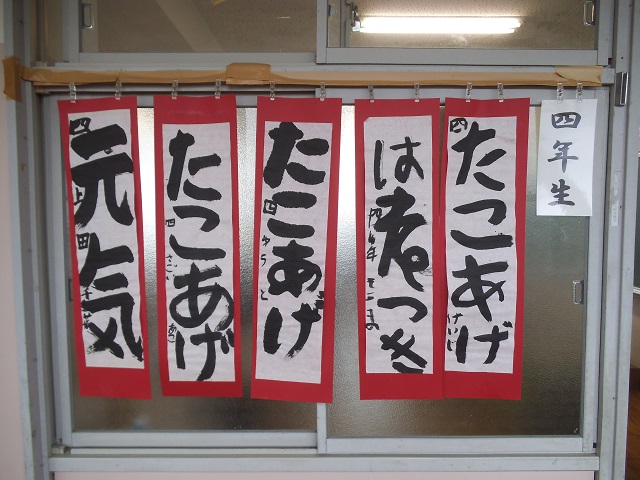 四年生
たこあげ
四 けいじ
はねつき
四年
たこあげ
四 ゆうと
たこあげ
四
元気
四 上田